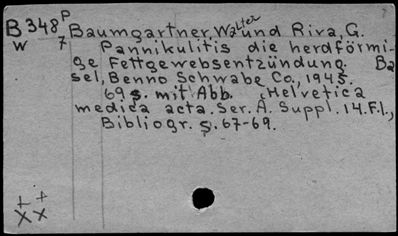 B 348 P Baumgartner, Walter und Riva, G.
W 7 Pannikulitis die herdförmi-
ge Fettgewebsentzündung. Ba
sel, Benno Schwabe Co., 1945.
69 s. mit Abb. (Helvetica
medica acta. Ser. A. Suppl. 14. F.I.,
Bibliogr. S. 67-69.